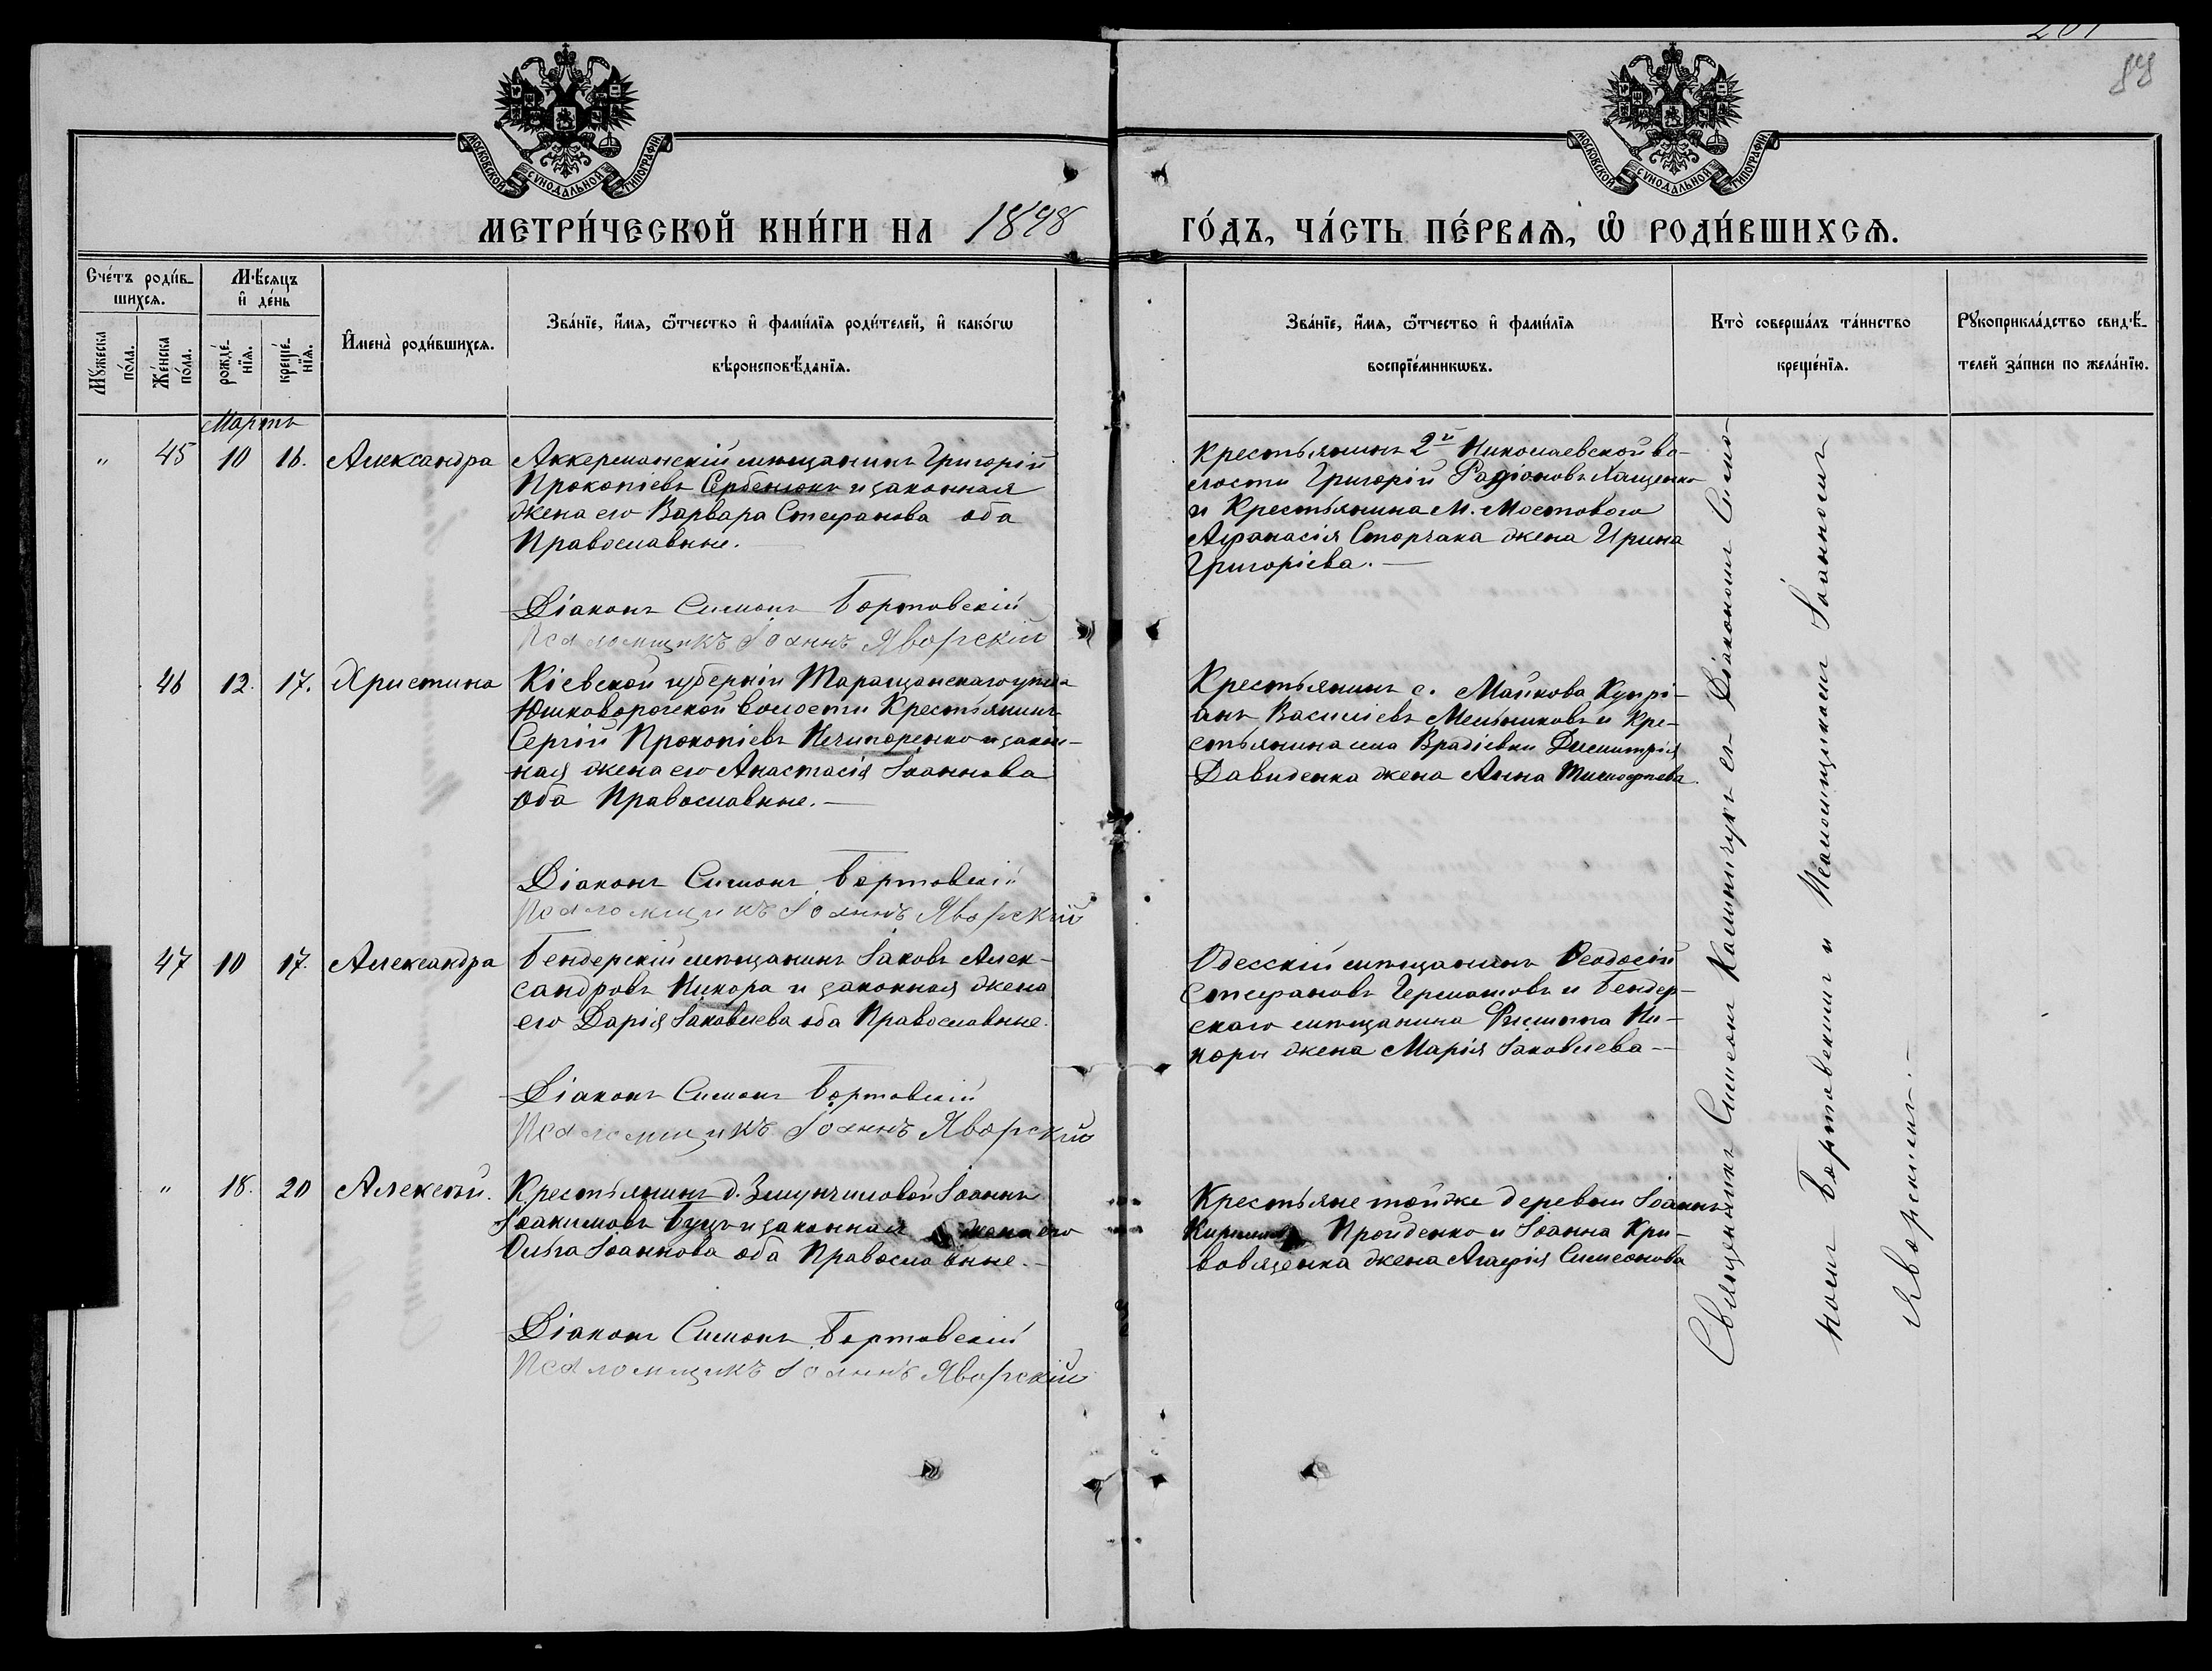 201
МОСКОВСКОЙ СѴНОДАЛЬНОЙ ТИПОГРАФІИ.
МОСКОВСКОЙ СѴНОДАЛЬНОЙ ТИПОГРАФІИ.
МЕТРИ́ЧЕСКОЙ КНИ́ГИ НА 1898
ГО́ДЪ, ЧА́СТЬ ПЕ́РВАѦ, Ѡ҆ РОДИ́ВШИХСѦ.
Сче́тъ роди́в-
шихсѧ.
Мꙋжеска
по́ла.
Же́нска
по́ла.
Мѣ́сѧцъ
и҆ де́нь
рожде́-
нїѧ.
креще́-
нїѧ.
И҆мена̀ роди́вшихсѧ.
Зва́нїе, и҆́мѧ, ѻ҆́тчество и҆ фами́лїѧ роди́телей, и҆ како́гѡ
вѣроисповѣ́данїѧ.
Зва́нїе, и҆́мѧ, ѻ҆́тчество и҆ фами́лїѧ
воспрїе́мникѡвъ.
Кто̀ соверша́лъ та́инство
креще́нїѧ.
Рꙋкоприкла́дство свидѣ́-
телей за́писи по жела́нїю.
Мартъ
" 45 10 16. Александра
Аккерманскій мѣщанинъ Григорій
Прокопіевъ Сербенюкъ и законная
жена его Варвара Стефанова оба
Православные.
Діаконъ Симонъ Бортовскій
Псаломщикъ Іоаннъ Яворскій
Крестьянинъ 2й Николаевской во-
лости Григорій Радіоновъ Лащенко
и Крестьянина м. Мостового
Афанасія Сторчака жена Ирина
Григоріева.
46 12. 17. Христина
Кіевской губерніи Таращанскаго уѣзда
Юшковорогской волости Крестьянинъ
Сергій Прокопіевъ Нечипоренко и закон-
ная жена его Анастасія Іоаннова
оба Православные.
Діаконъ Симонъ Бортовскій
Псаломщикъ Іоаннъ Яворскій
Крестьянинъ с. Майкова Купрі-
анъ Василіевъ Мельниковъ и Кре-
стьянина села Врадіевки Димитрія
Давиденка жена Анна Тимофѣева.
47 10 17. Александра
Бендерскій мѣщанинъ Іаковъ Алек-
сандровъ Никора и законная жена
его Дарія Іаковлева оба Православные.
Діаконъ Симонъ Бортовскій
Псаломщикъ Іоаннъ Яворскій
Одесскій мѣщанинъ Ѳеодосій
Стефановъ Германовъ и Бендер-
скаго мѣщанина Филиппа Ни-
коры жена Марія Іаковлева
" 18. 20 Алексѣй.
Крестьянинъ д. Змунчиловой Іоаннъ
Іоакимовъ Буцъ и законная жена его
Ольга Іоаннова оба Православные.
Діаконъ Симонъ Бортовскій
Псаломщикъ Іоаннъ Яворскій
Крестьяне той же деревни Іоаннъ
Пройденко и Іоанна Кри-
вовященка жена Агафія Симеонова
Священникъ Симеонъ Калиничукъ съ Діакономъ Симо-
номъ Бортовскимъ и Псаломщикомъ Іоанномъ
Яворскимъ.